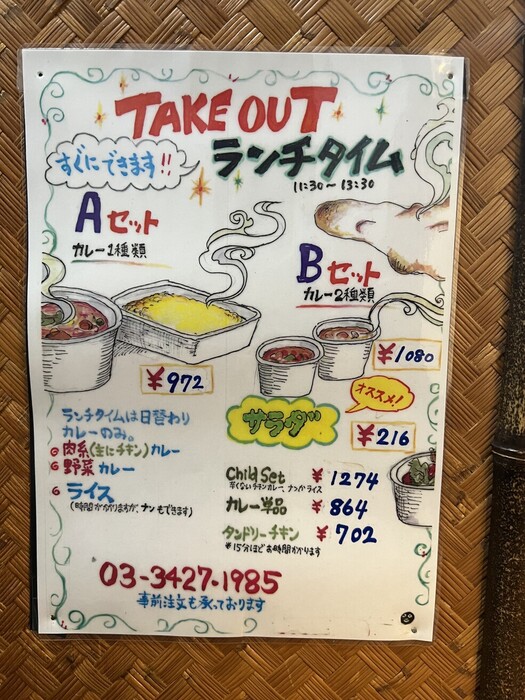 TAKE OUT
すぐにできます!!
ランチタイム
11:30〜13:30
Aセット
カレー1種類
Bセット
カレー2種類
¥972
¥1080
オススメ!
サラダ
¥216
ランチタイムは日替わり
カレーのみ。
肉系(主にチキン)カレー
野菜カレー
ライス
(時間かかりますが、ナンもできます)
Child Set ¥1274
辛くないチキンカレー、ナンかライス
カレー単品 ¥864
タンドリーチキン ¥702
*15分ほどお時間かかります
03-3427-1985
事前注文も承っております